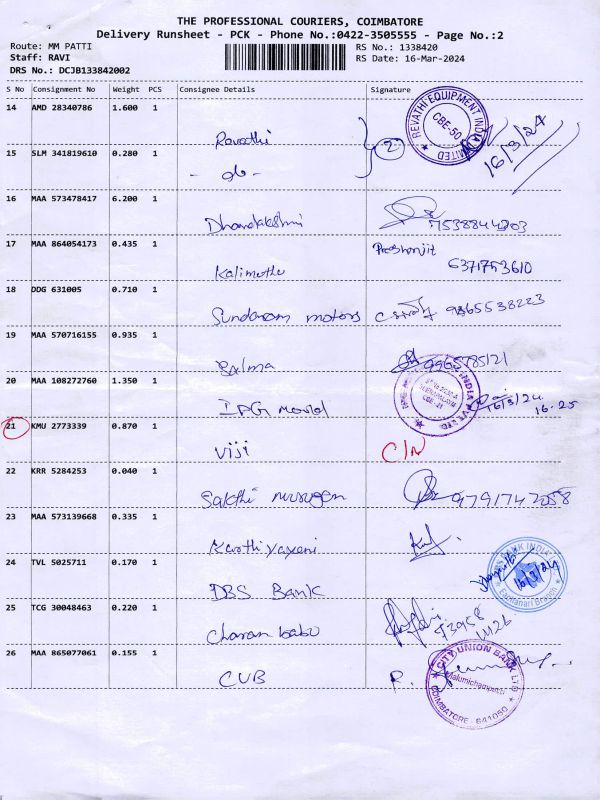 THE PROFESSIONAL COURIERS, COIMBATORE
Delivery Runsheet - PCK - Phone No.:0422-3505555 - Page No.:2
Route: MM PATTI
Staff: RAVI
DRS No.: DCJB133842002
RS No.: 1338420
RS Date: 16-Mar-2024
S No Consignment No Weight PCS Consignee Details Signature
14 AMD 28340786 1.600 1
Revathi
REVATHI EQUIPMENT INDIA LIMITED
CBE-50
2
16/3/24
15 SLM 341819610 0.280 1
- do -
16 MAA 573478417 6.200 1
Dhanalakshmi
7538844203
17 MAA 864054173 0.435 1
Kalimuthu
Proshonjit
6371753610
18 DDG 631005 0.710 1
Sundaram motors
9865538223
19 MAA 570716155 0.935 1
Salma
20 MAA 108272760 1.350 1
IPG mould
CBE-21
16/3/24
16-25
21 KMU 2773339 0.870 1
Viji
C/N
22 KRR 5284253 0.040 1
Sakthi murugan
9791747058
23 MAA 573139668 0.335 1
Karthiyayeni
24 TVL 5025711 0.170 1
DBS Bank
BANK INDIA
Eachanari Branch
16/3/24
25 TCG 30048463 0.220 1
Charan babu
26 MAA 865077061 0.155 1
CUB
R.
CITY UNION BANK LTD
Malumichampatti
COIMBATORE - 641050